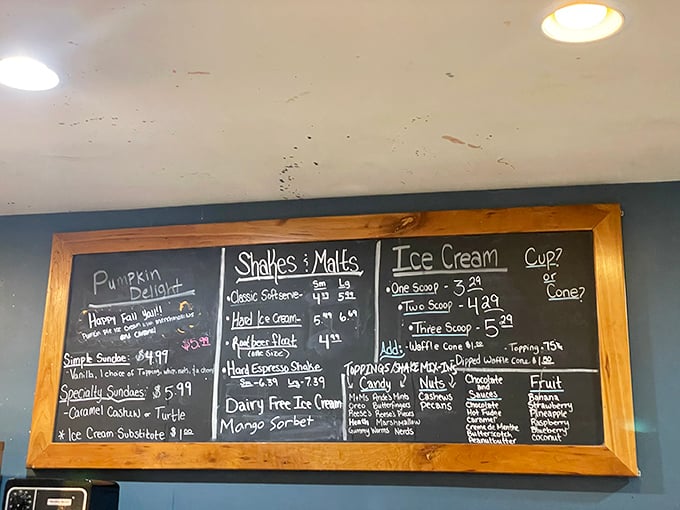 Pumpkin
Delight
Happy Fall Yall!!
Pumpkin Pie Ice Cream with Marshmallows
and Caramel
$5.99
Simple Sundae: $4.99
-Vanilla, 1 choice of Topping, whip, nuts, & cherry
Specialty Sundaes: $5.99
-Caramel Cashew or Turtle
* Ice Cream Substitute $1.00
Shakes & Malts
Sm Lg
•Classic Softserve- 5.99
•Hard Ice Cream- 5.99 6.69
•Rootbeer float 4.99
(one size)
•Hard Espresso Shake
Sm-6.39 Lg-7.39
Dairy Free Ice Cream
Mango Sorbet
Ice Cream
•One Scoop - 3.29
•Two Scoop - 4.29
•Three Scoop - 5.29
Add: -Waffle Cone $1.00 -Topping .75¢
-Dipped Waffle Cone $1.00
Cup?
or
Cone?
TOPPINGS/SHAKE MIX-INS
Candy
M&Ms Ande's Mints
Oreo Butterfingers
Reese's Reese's Pieces
Heath Marshmallow
Gummy Worms Nerds
Nuts
Cashews
Pecans
Chocolate
and
Sauces
Chocolate
Hot Fudge
Caramel
Creme de Menthe
Butterscotch
Peanutbutter
Fruit
Banana
Strawberry
Pineapple
Raspberry
Blueberry
Coconut